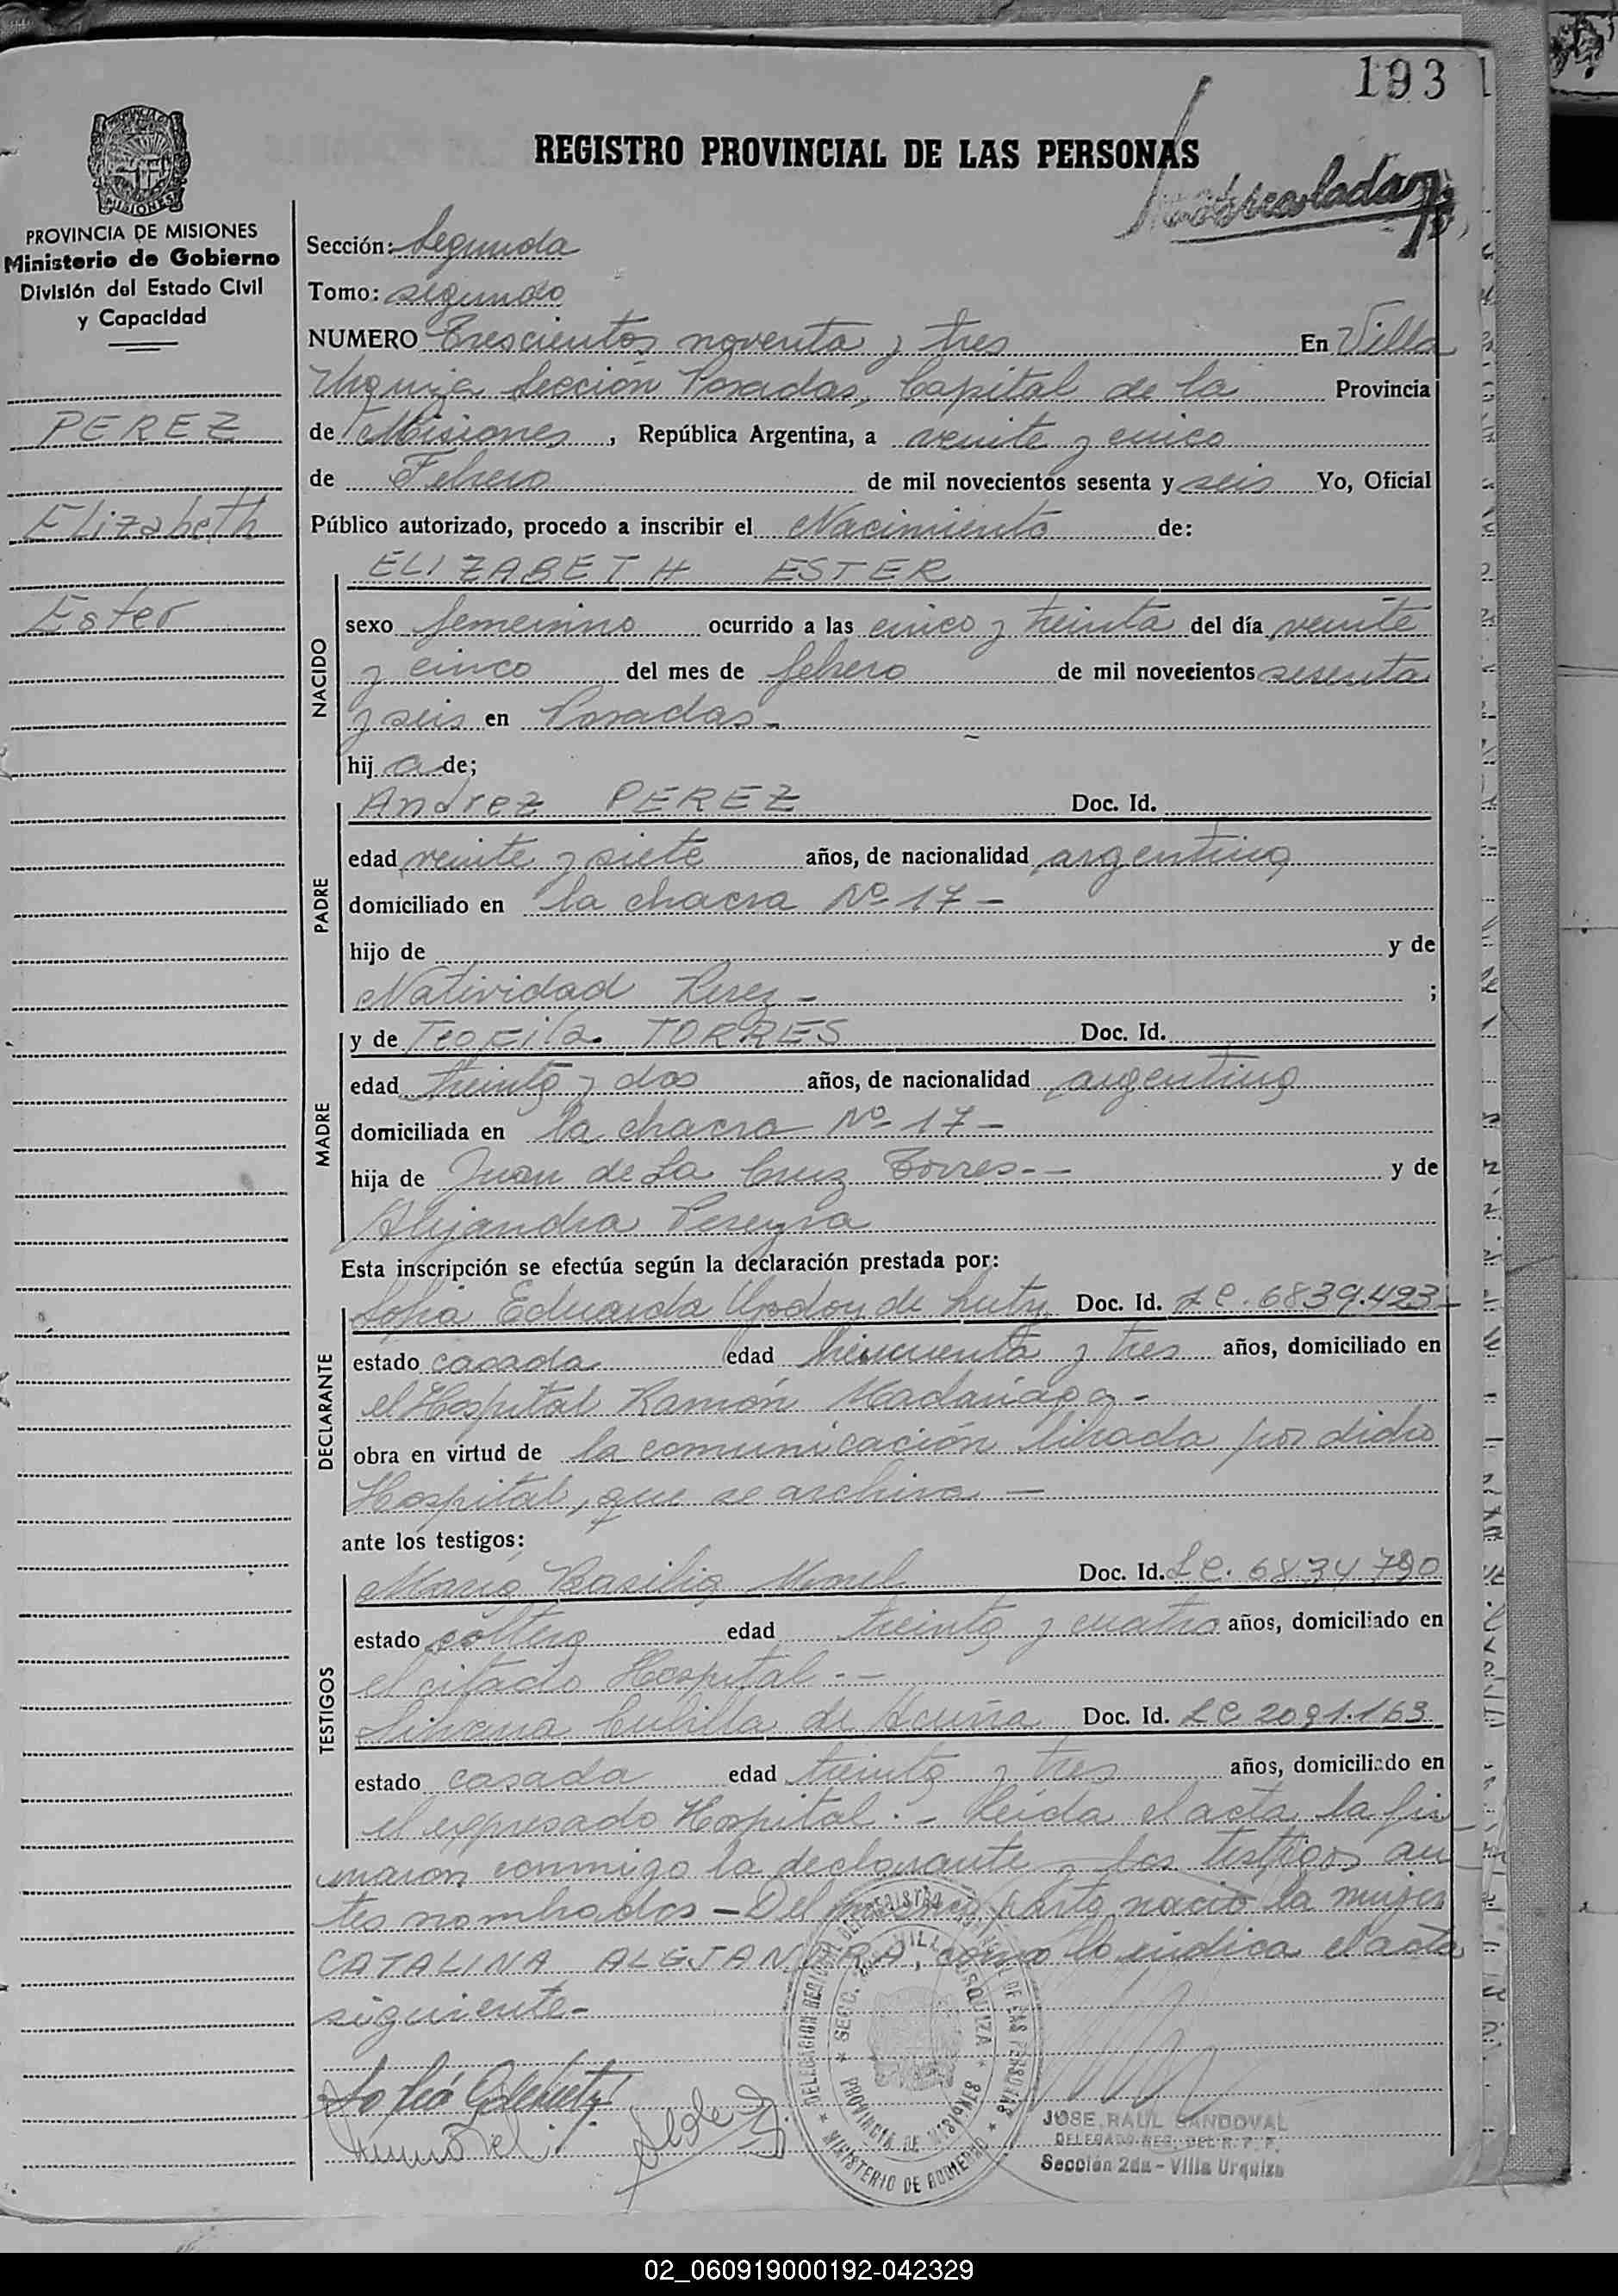 193
REGISTRO PROVINCIAL DE LAS PERSONAS
MISIONES
PROVINCIA DE MISIONES
Ministerio de Gobierno
División del Estado Civil
y Capacidad
PEREZ
Elizabeth
Ester
Sección: Segunda
Tomo: segundo
NUMERO Trescientos noventa y tres En Villa
Urquiza Sección Posadas, Capital de la Provincia
de Misiones, República Argentina, a veinte y cinco
de Febrero de mil novecientos sesenta y seis Yo, Oficial
Público autorizado, procedo a inscribir el Nacimiento de:
ELIZABETH ESTER
NACIDO
sexo femenino ocurrido a las cinco y treinta del día veinte
y cinco del mes de febrero de mil novecientos sesenta
y seis en Posadas.-
hija de;
PADRE
Andrez PEREZ Doc. Id.
edad veinte y siete años, de nacionalidad argentina
domiciliado en la chacra Nº 17-
hijo de y de
Natividad Perez- ;
MADRE
y de Teofila TORRES Doc. Id.
edad treinta y dos años, de nacionalidad argentina
domiciliada en la chacra Nº 17-
hija de Juan de La Cruz Torres.-- y de
Alejandra Pereyra
Esta inscripción se efectúa según la declaración prestada por:
DECLARANTE
Sofia Eduarda Godoy de Doc. Id. LC. 6839.423-
estado casada edad cincuenta y tres años, domiciliado en
el Hospital Ramón Madariaga-
obra en virtud de la comunicación librada por dicho
Hospital, que se archiva.-
ante los testigos:
TESTIGOS
Maria Basilia Doc. Id. LC. 6834790
estado soltera edad treinta y cuatro años, domiciliado en
el citado Hospital.--
Cubilla de Acuña Doc. Id. LC 2091.163
estado casada edad treinta y tres años, domiciliado en
el expresado Hospital.- Leida el acta la fir
maron conmigo la declarante y los testigos an
tes nombrados - Del mismo parto nació la mujer
CATALINA ALEJANDRA, como lo indica el acta
siguiente-
DELEGACION REGISTRO PROVINCIAL DE LAS PERSONAS
SECC. VILLA URQUIZA
PROVINCIA DE MISIONES
MINISTERIO DE GOBIERNO
JOSE RAUL SANDOVAL
DELEGADO REG. DEL R. P. P.
Sección 2da - Villa Urquiza
02_060919000192-042329